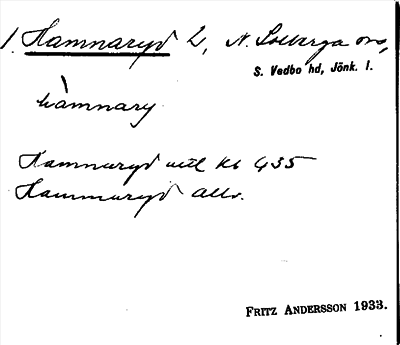 1. Hamnaryd 2, N. Solberga sn,
S. Vedbo hd, Jönk. l.
hàmnary
Hamnaryd utl kb 435
Hammaryd allm.
FRITZ ANDERSSON 1933.